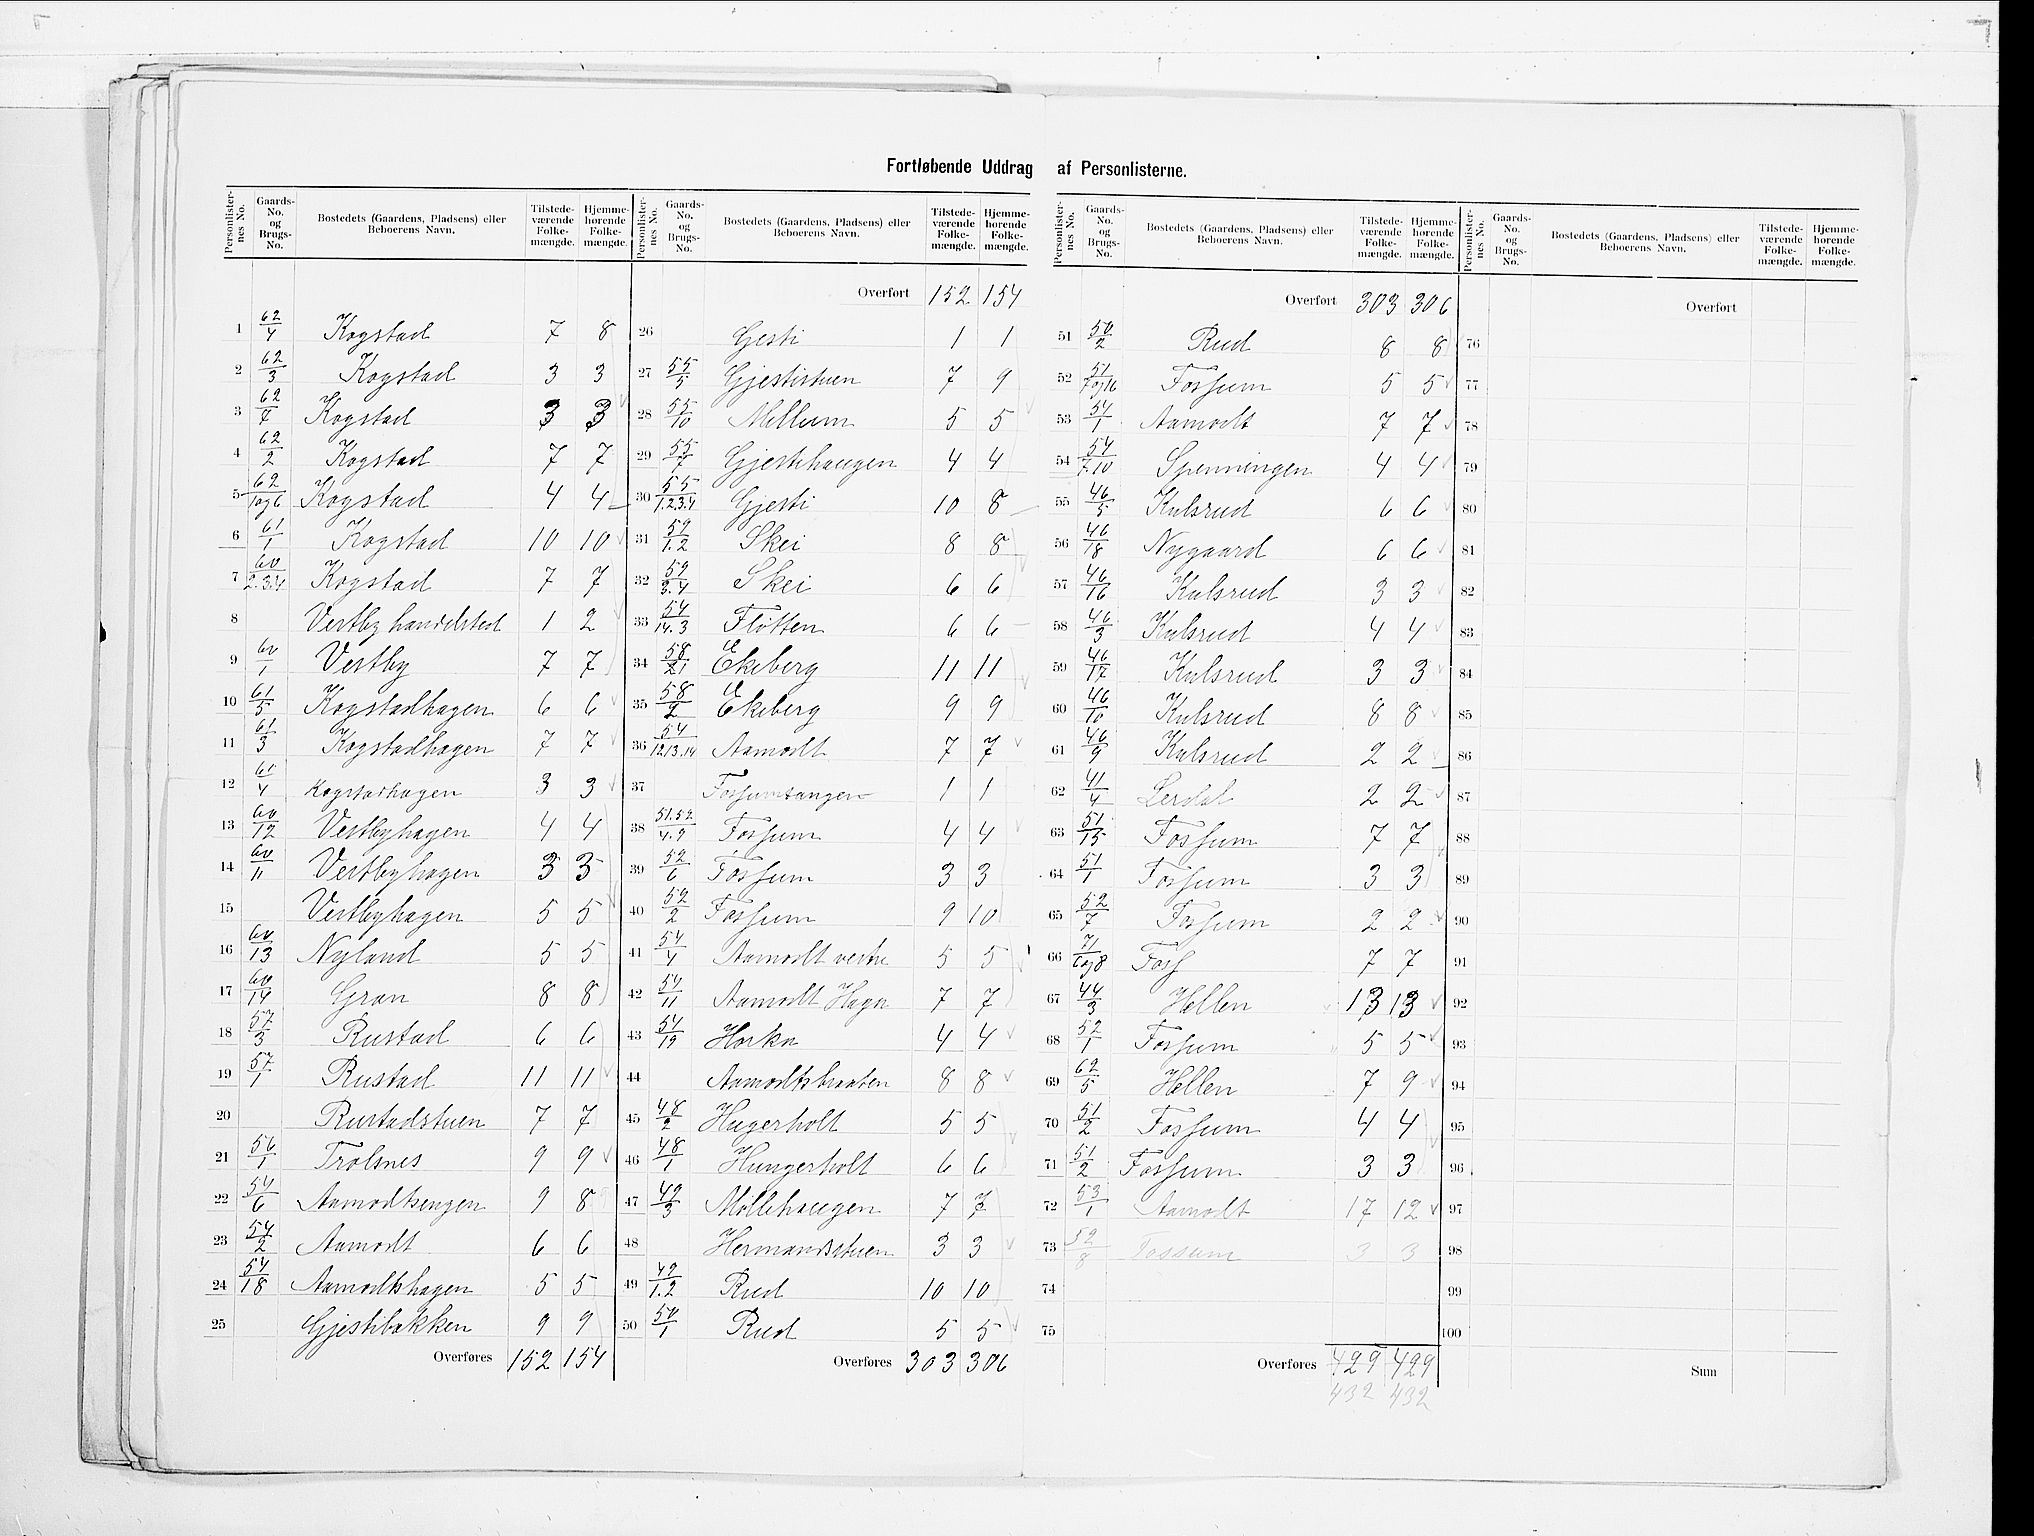 Fortløbende Uddrag af Personlisterne.
Personlister-nes No. Gaards-No. og Brugs-No. Bostedets (Gaardens, Pladsens) eller Beboerens Navn. Tilstede-værende Folke-mængde. Hjemme-hørende Folke-mængde.
1 62/4 Kogstad 7 8
2 62/3 Kogstad 3 3
3 62/ Kogstad 3 3
4 62/2 Kogstad 7 7
5 62/1og6 Kogstad 4 4
6 61/1 Kogstad 10 10
7 60/2.3.4 Kogstad 7 7
8 Vestby handelsted 1 2
9 60/1 Vestby 7 7
10 61/5 Kogstadhagen 6 6
11 61/3 Kogstadhagen 7 7
12 61/4 Kogstadhagen 3 3
13 60/12 Vestbyhagen 4 4
14 60/11 Vestbyhagen 3 3
15 Vestbyhagen 5 5
16 60/13 Nyland 5 5
17 60/14 Gran 8 8
18 57/3 Rustad 6 6
19 57/1 Rustad 11 11
20 Rustadstuen 7 7
21 56/1 Trolsnes 9 9
22 54/6 Aamodtsengen 9 8
23 54/2 Aamodt 6 6
24 54/18 Aamodtshagen 5 5
25 Gjestibakken 9 9
Overføres 152 154
Personlister-nes No. Gaards-No. og Brugs-No. Bostedets (Gaardens, Pladsens) eller Beboerens Navn. Tilstede-værende Folke-mængde. Hjemme-hørende Folke-mængde.
Overført 152 154
26 Gjesti 1 1
27 55/5 Gjestistuen 7 9
28 55/10 Mellum 5 5
29 55/7 Gjestihaugen 4 4
30 55/1.2.3.4 Gjesti 10 8
31 59/1.2 Skei 8 8
32 59/3.4 Skei 6 6
33 54/14.3 Fløtten 6 6
34 58/ Ekeberg 11 11
35 58/2 Ekeberg 9 9
36 54/12.13.14 Aamodt 7 7
37 Fossumtangen 1 1
38 51.52/4.9 Fossum 4 4
39 52/6 Fossum 3 3
40 52/2 Fossum 9 10
41 54/4 Aamodt vestre 5 5
42 54/11 Aamodt Hagn 7 7
43 54/19 Horka 4 4
44 Aamodtsbraaten 8 8
45 48/2 Hugerholt 5 5
46 48/1 Hungerholt 6 6
47 49/3 Møllehaugen 7 7
48 Hermandsstuen 3 3
49 49/1.2 Rud 10 10
50 50/1 Rud 5 5
Overføres 303 306
Personlister-nes No. Gaards-No. og Brugs-No. Bostedets (Gaardens, Pladsens) eller Beboerens Navn. Tilstede-værende Folke-mængde. Hjemme-hørende Folke-mængde.
Overført 303 306
51 50/2 Rud 8 8
52 51/7og16 Fossum 5 5
53 54/1 Aamodt 7 7
54 54/7.10 Spenningen 4 4
55 46/5 Kulsrud 6 6
56 46/18 Nygaard 6 6
57 46/16 Kulsrud 3 3
58 46/3 Kulsrud 4 4
59 46/17 Kulsrud 3 3
60 46/10 Kulsrud 8 8
61 46/9 Kulsrud 2 2
62 41/4 Lerdal 2 2
63 51/15 Fossum 7 7
64 51/1 Fossum 3 3
65 52/7 Fossum 2 2
66 71/6og8 Foss 7 7
67 44/3 Hellen 13 13
68 52/1 Fossum 5 5
69 62/5 Hellen 7 9
70 51/2 Fossum 4 4
71 51/2 Fossum 3 3
72 53/1 Aamodt 17 12
73 52/8 Fossum 3 3
74
75
Overføres 429 429
432 432
Personlister-nes No. Gaards-No. og Brugs-No. Bostedets (Gaardens, Pladsens) eller Beboerens Navn. Tilstede-værende Folke-mængde. Hjemme-hørende Folke-mængde.
Overført
76
77
78
79
80
81
82
83
84
85
86
87
88
89
90
91
92
93
94
95
96
97
98
99
100
Sum